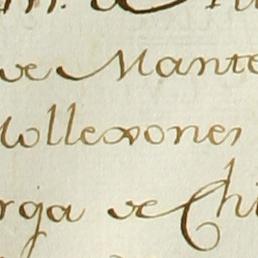 de Mante
Mollexones
rga de Chi